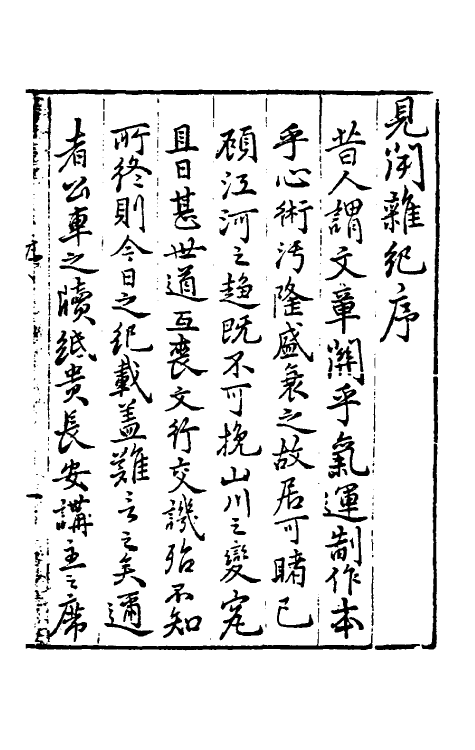 見聞雜紀序
昔人謂文章關乎氣運制作本
乎心術汚隆盛衰之故居可睹已
顧江河之趨既不可挽山川之變寃
且日甚世道互喪文行交譏殆不知
所終則今日之紀載蓋難言之矣邇
者公車之牘紙貴長安講主之席